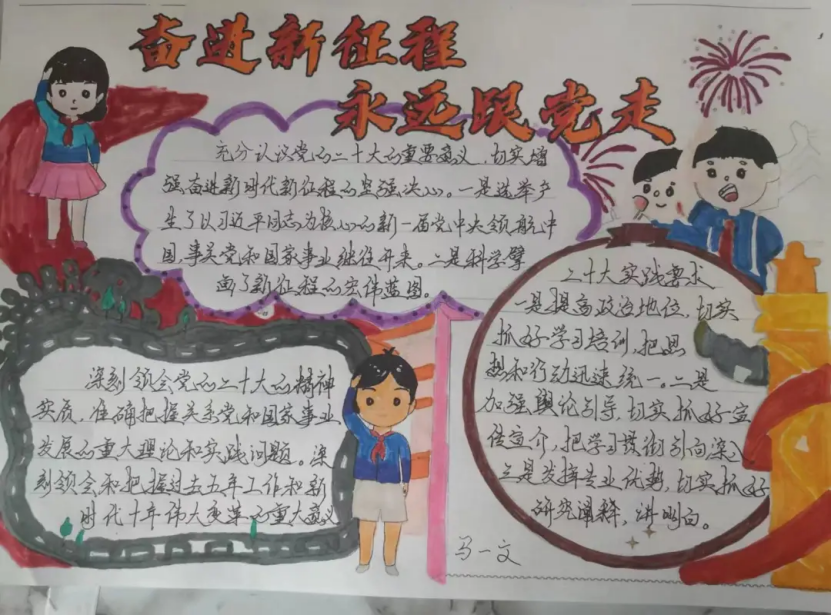 奋进新征程
永远跟党走
充分认识党的二十大的重要意义，切实增
强奋进新时代新征程的坚强决心。一是选举产
生了以习近平同志为核心的新一届党中央领航中
国，事关党和国家事业继往开来。二是科学擘
画了新征程的宏伟蓝图。
二十大实践要求
一是提高政治地位，切实
抓好学习培训，把思
想和行动迅速统一。二是
加强舆论引导，切实抓好宣
传宣介，把学习贯彻引向深入
三是发挥专业优势，切实抓好
研究阐释，讲明白。
深刻领会党的二十大的精神
实质，准确把握关系党和国家事业
发展的重大理论和实践问题。深
刻领会和把握过去五年工作和新
时代十年伟大变革的重大意义
马一文